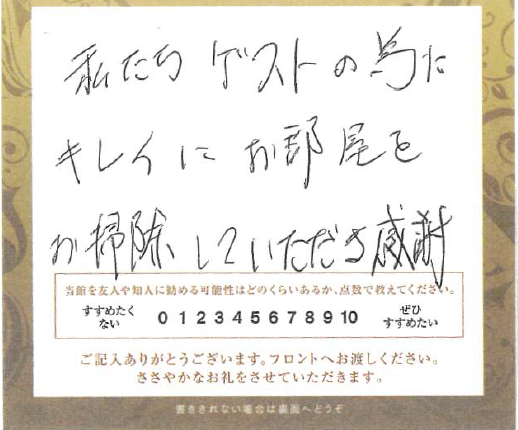 私たちゲストの為に
キレイにお部屋を
お掃除していただき感謝
当館を友人や知人に勧める可能性はどのくらいあるか、点数で教えてください。
すすめたく
ない
0 1 2 3 4 5 6 7 8 9 10
ぜひ
すすめたい
ご記入ありがとうございます。フロントへお渡しください。
ささやかなお礼をさせていただきます。
書ききれない場合は裏面へどうぞ